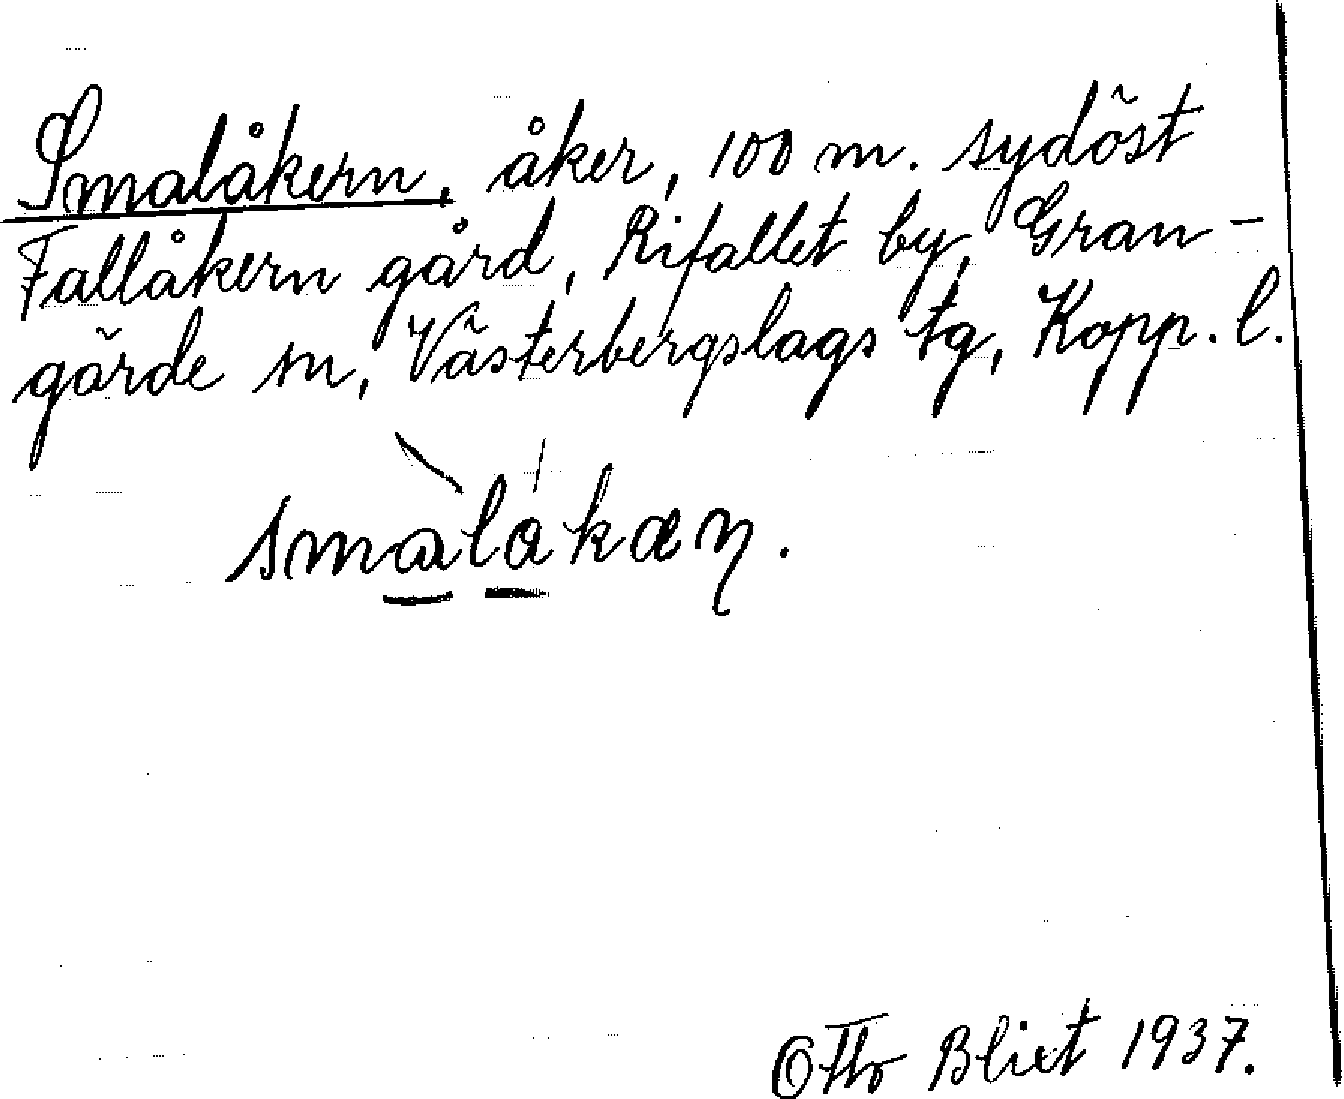 Smalåkern, åker, 100 m. sydöst
Fallåkern gård, Rifallet by, Gran-
gärde sn, Västerbergslags tg, Kopp. l.
smalåkæn.
Otto Blixt 1937.